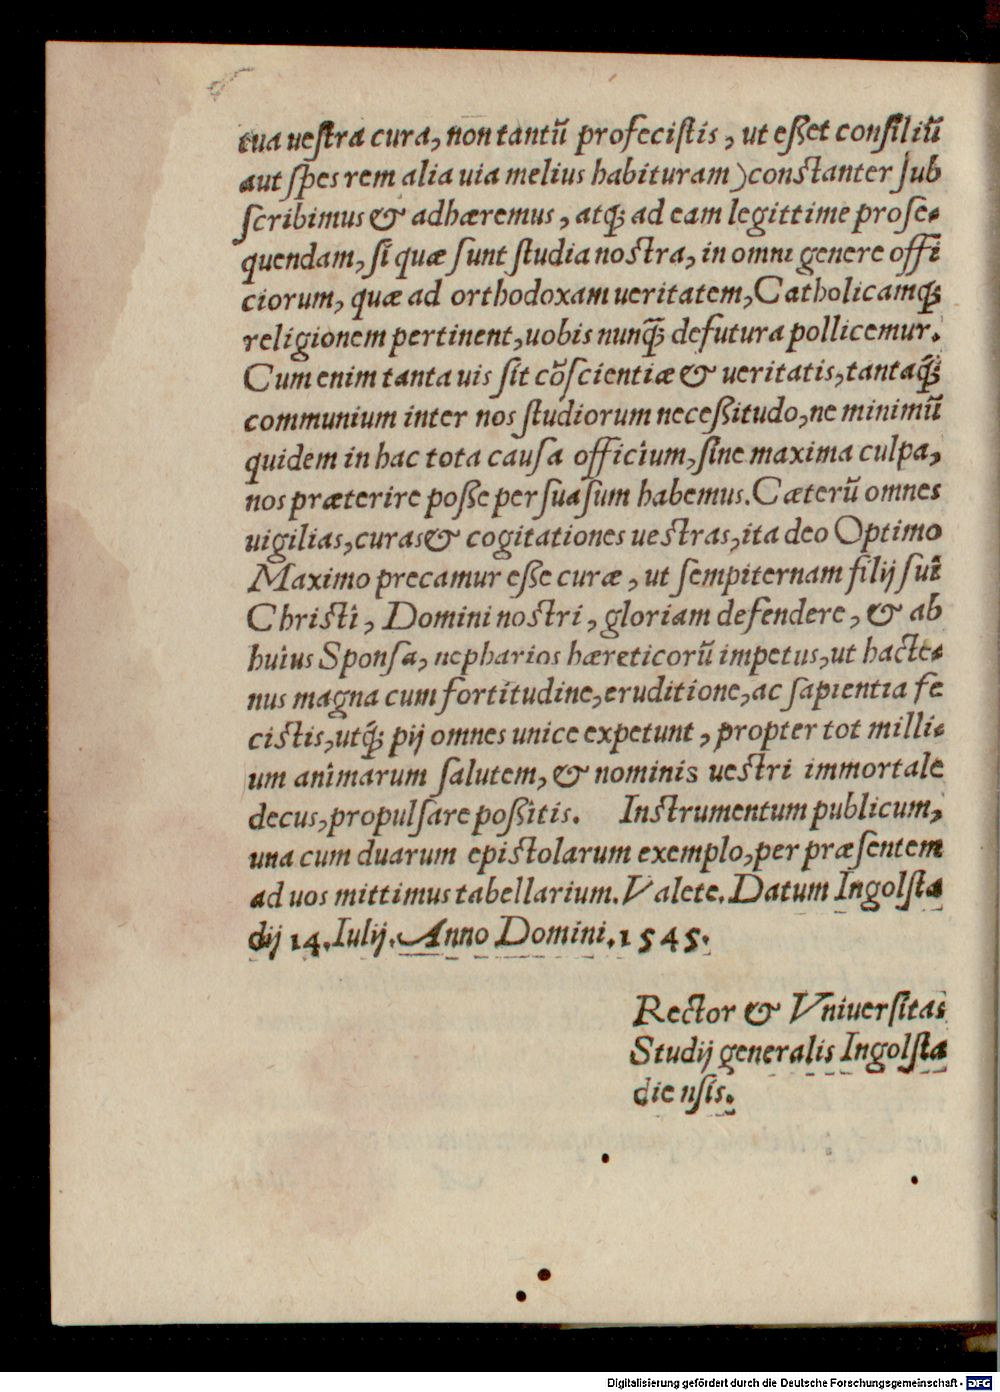 tua uestra cura, non tantũ profecistis, ut eßet consiliũ
aut spes rem alia uia melius habituram) constanter sub
scribimus & adhæremus, atq́; ad eam legittime prose-
quendam, si quæ sunt studia nostra, in omni genere offi
ciorum, quæ ad orthodoxam ueritatem, Catholicamq́;
religionem pertinent, uobis nunq̃; defutura pollicemur.
Cum enim tanta uis sit cõscientiæ & ueritatis, tantaq́;
communium inter nos studiorum neceßitudo, ne minimũ
quidem in hac tota causa officium, sine maxima culpa,
nos præterire poße persuasum habemus. Cæterũ omnes
uigilias, curas & cogitationes uestras, ita deo Optimo
Maximo precamur eße curæ, ut sempiternam filij sui
Christi, Domini nostri, gloriam defendere, & ab
huius Sponsa, nepharios hæreticorũ impetus, ut hacte-
nus magna cum fortitudine, eruditione, ac sapientia fe
cistis, utq́; pij omnes unice expetunt, propter tot milli-
um animarum salutem, & nominis uestri immortale
decus, propulsare poßitis. Instrumentum publicum,
una cum duarum epistolarum exemplo, per præsentem
ad uos mittimus tabellarium. Valete. Datum Ingolsta
dij 14. Iulij. Anno Domini. 1545.
Rector & Vniuersitas
Studij generalis Ingolsta
diensis.
Digitalisierung gefördert durch die Deutsche Forschungsgemeinschaft - DFG